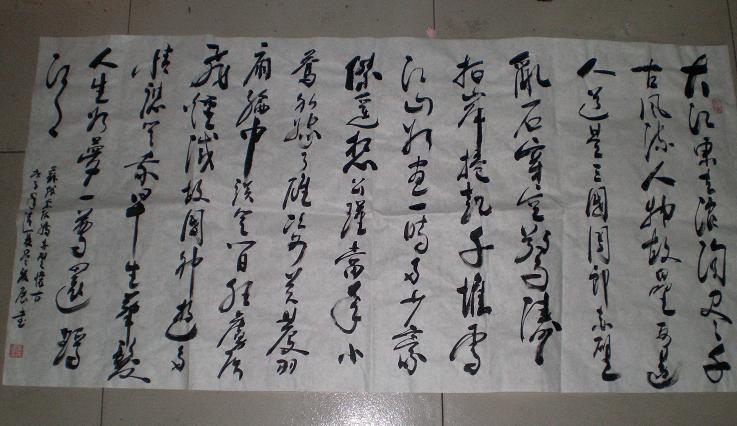 大江東去浪淘盡千
古風流人物故壘西邊
人道是三國周郎赤壁
亂石穿空驚濤
拍岸捲起千堆雪
江山如畫一時多少豪
傑遙想公瑾當年小
喬初嫁了雄姿英發羽
扇綸巾談笑間檣櫓灰
飛煙滅故國神遊多
情應笑我早生華髮
人生如夢一尊還酹
江月
蘇軾念奴嬌赤壁懷古